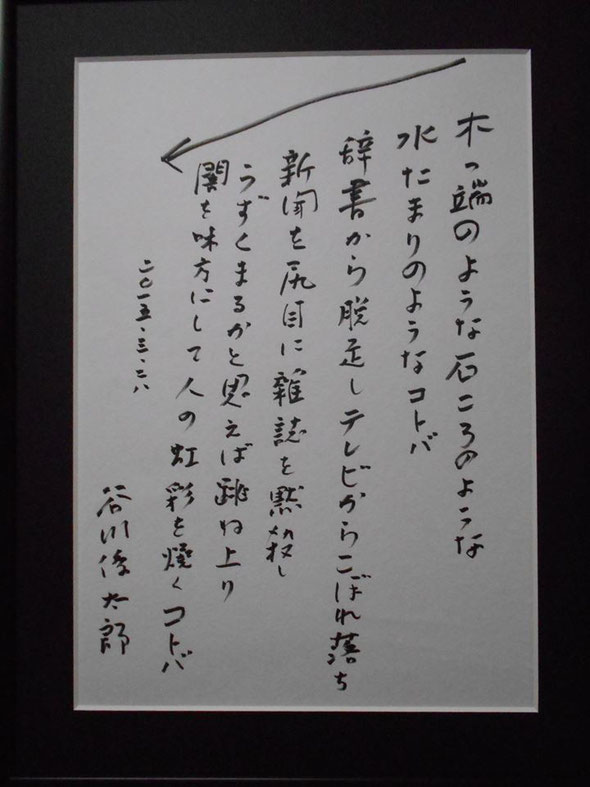 木っ端のような石ころのような
水たまりのようなコトバ
辞書から脱走しテレビからこぼれ落ち
新聞を尻目に雑誌を黙殺し
うずくまるかと思えば跳ね上り
闇を味方にして人の虹彩を焼くコトバ
二〇一五、三、二八
谷川俊太郎